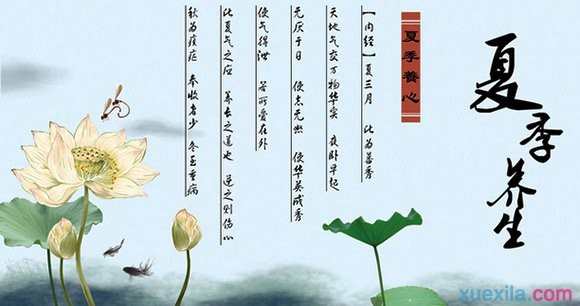 夏季养生
夏季養心
【内经】夏三月 此为蕃秀
天地气交万物华实 夜卧早起
无厌于日 使志无怒 使华英成秀
使气得泄 若所爱在外
此夏气之应 养长之道也 逆之则伤心
秋为痎疟 奉收者少 冬至重病
xuexila.com